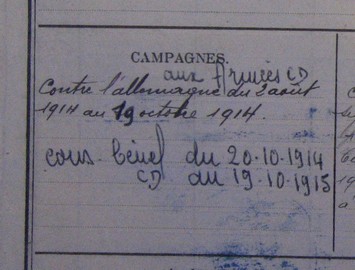 CAMPAGNES.
aux Armées CD
Contre l'allemagne du 2 août
1914 au 19 octobre 1914.
cons. bénéf du 20-10-1914
CD au 19-10-1915